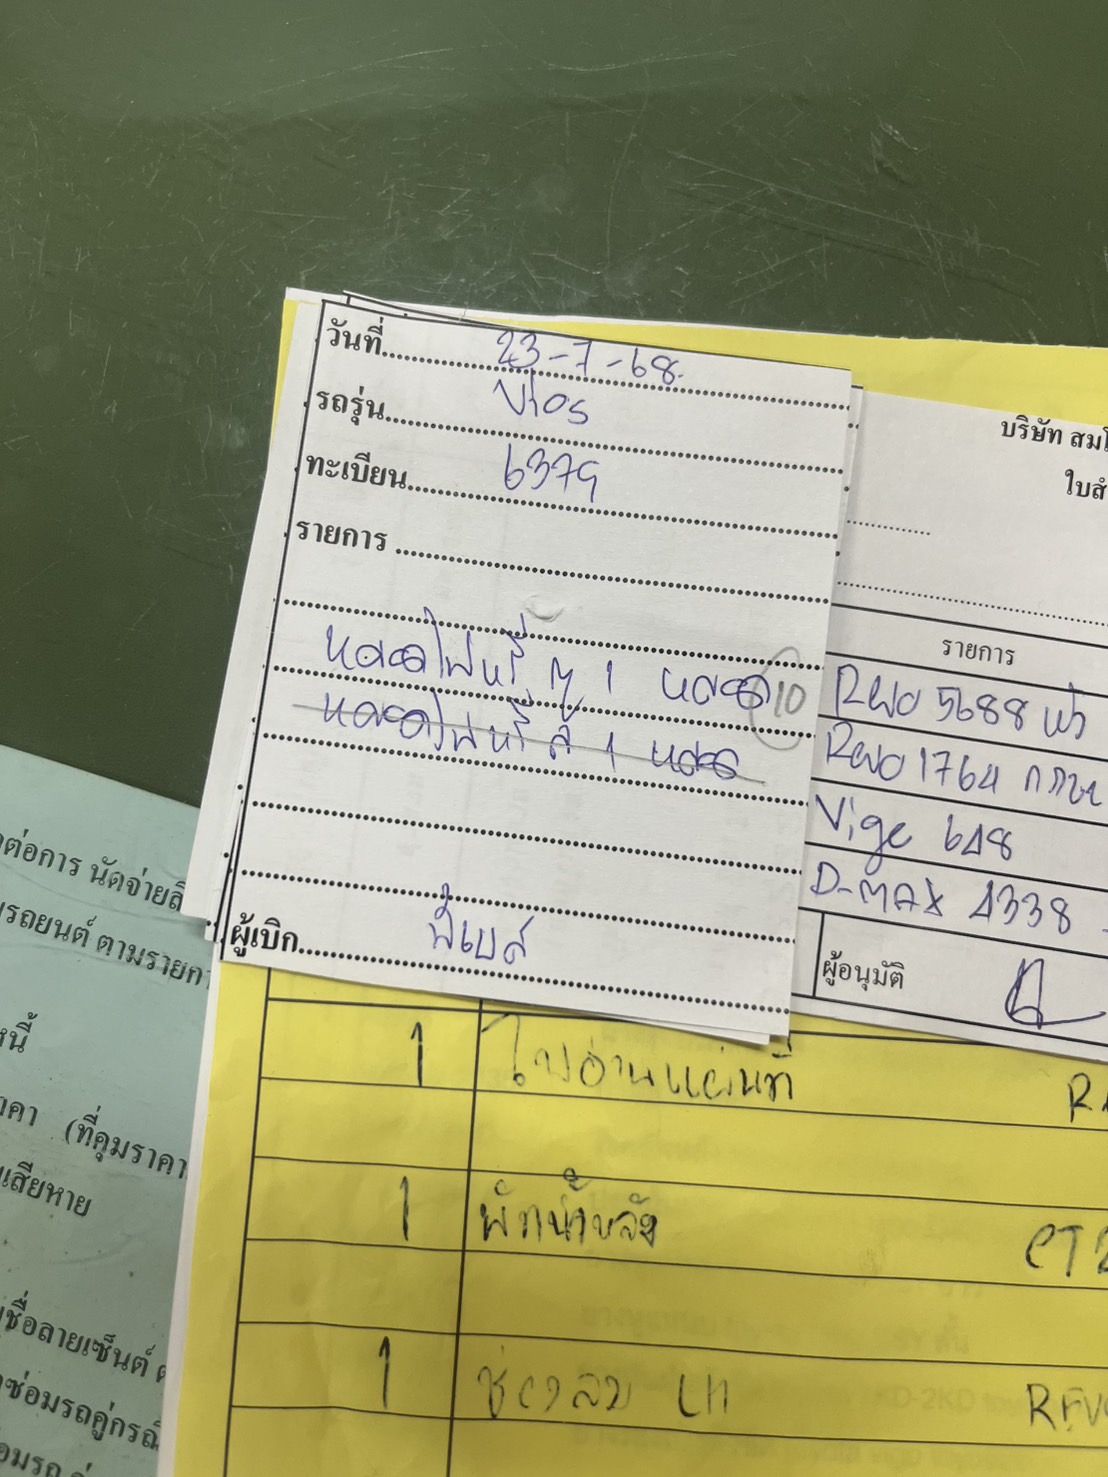 วันที่ 23-7-68
รถรุ่น Vios
ทะเบียน 6379
รายการ
หลอดไฟหรี่ 1 หลอด 10
หลอดไฟหรี่ 1 หลอด
ผู้เบิก พี่เบส
บริษัท สมโ
ใบสั
รายการ
Revo 5688
Revo 1764
Vigo 648
D-MAX 4338
ผู้อนุมัติ
1
1 พักน้ำหลัง CT2
1 LH REVO
ต่อการ นัดจ่าย
รถยนต์ ตามรายกา
หนี้
าคา (ที่คุมราคา
เสียหาย
ชื่อลายเซ็นต์
ซ่อมรถคู่กรณี